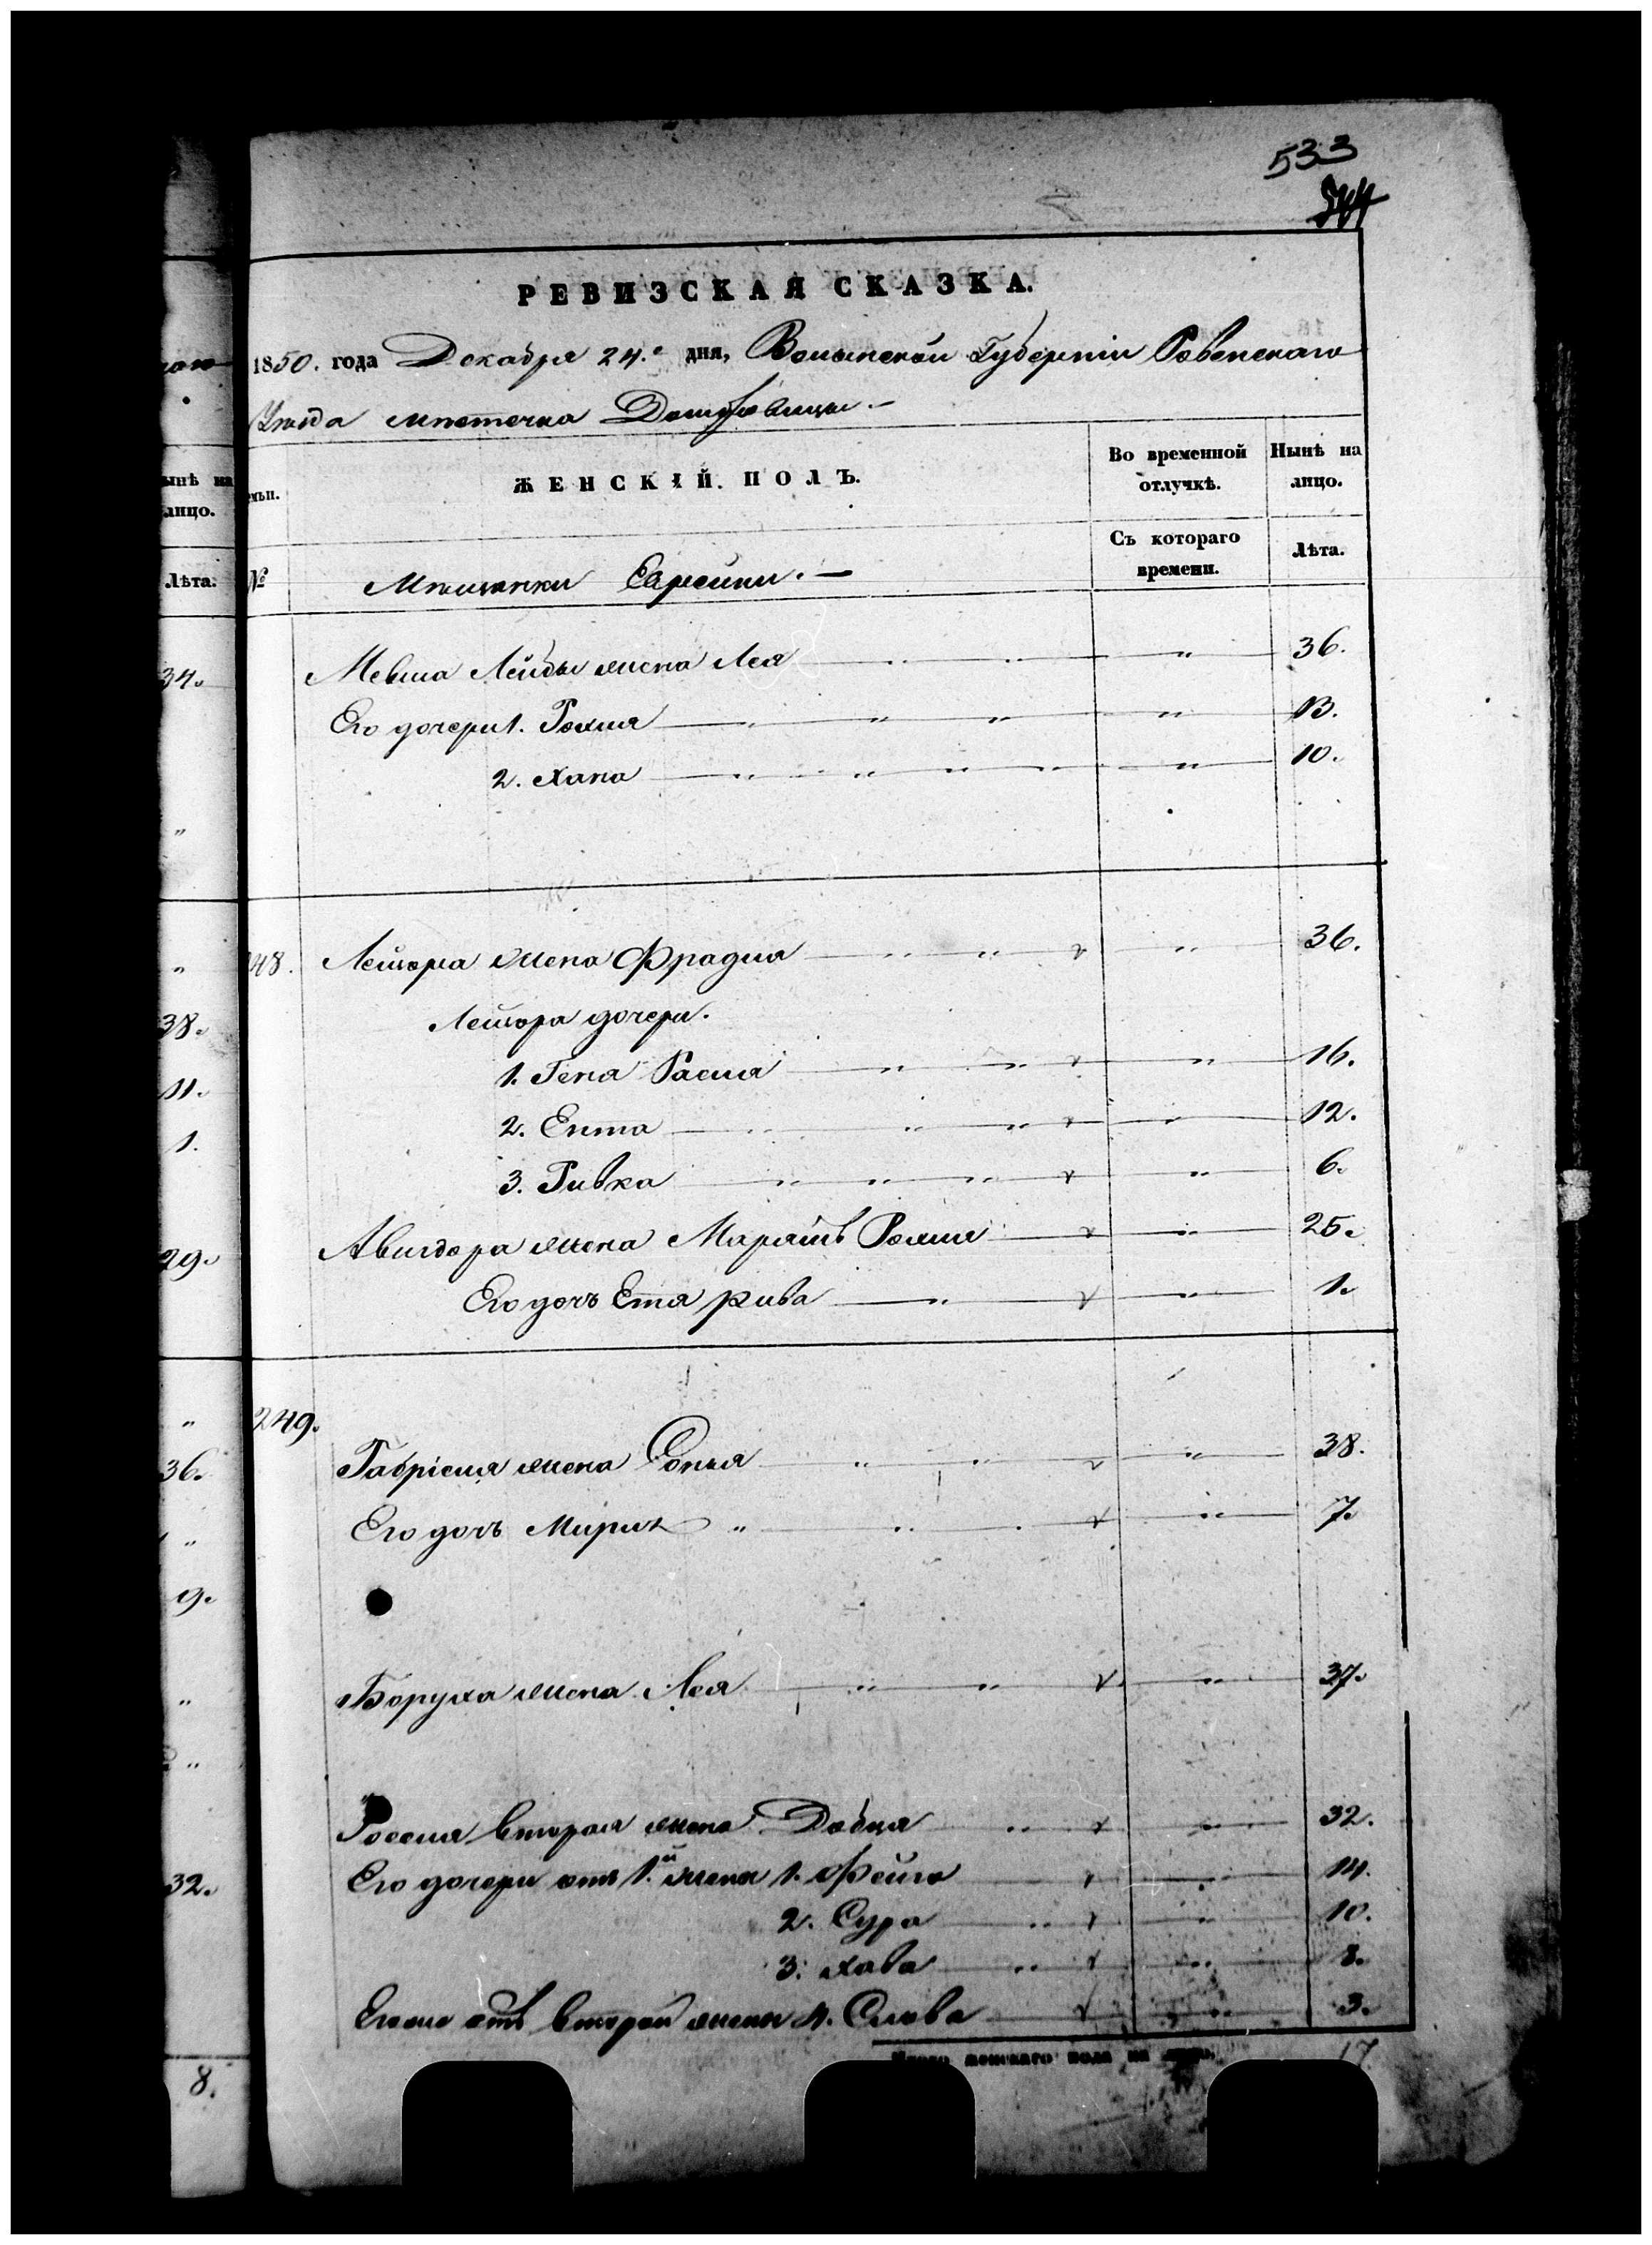 533
РЕВИЗСКАЯ СКАЗКА.
1850. года Декабря 24.го дня, Волынской Губерніи Ровенскаго
Уезда местечка Домбровицы.
ЖЕНСКІЙ ПОЛЪ.
Во временной отлучкѣ.
Нынѣ на лицо.
Съ котораго времени.
Лѣта.
№
Мещанки Евреики.
Мевша Лейбы жена Лея 36.
Его дочери 1. Рохля 13.
2. Хана 10.
248. Лейзора жена Фрадля 36.
Лейзора дочери.
1. Гена Расля 16.
2. Ента 12.
3. Ривка 6.
Авигдора жена Маріамъ Рохля 25.
Его дочь Етя Рива 1.
249.
Габріеля жена Соня 38.
Его дочь Мирих 7.
Боруха жена Лея 37.
Іоселя вторая жена Добця 32.
Его дочери отъ 1.й жены 1. Фейга 14.
2. Сура 10.
3. Хава 8.
Его же отъ второй жены 4. Слова 3.
Итого женскаго пола на лицо. 17
ынѣ на
лицо.
Лѣта.
34.
"
"
38.
11.
1.
29.
"
36.
"
9.
"
"
32.
8.